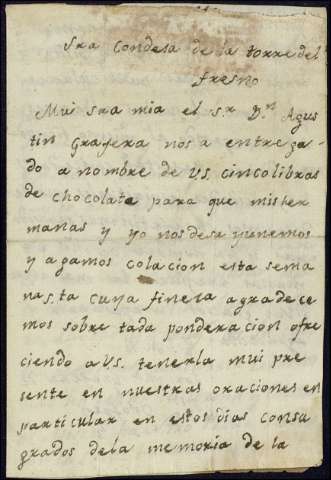 Sra Condesa de la torre del
fresno
Mui sra mia el sr Dn Agus
tin Grajera nos a entrega
do a nombre de VS. cinco libras
de chocolate para que mis her
manas y yo nos desayunemos
y agamos colacion esta sema
na s.ta cuya fineza agradece
mos sobre toda ponderacion ofre
ciendo a VS. tenerla mui pre
sente en nuestras oraciones en
particular en estos dias consa
grados de la memoria de la